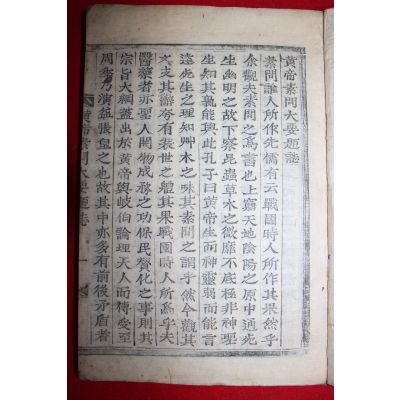 黃帝素問大要題誌
素問誰人所作先儒有云戰國時人所作其果然乎
余觀夫素問之爲書也上窮天地陰陽之原中通死
生幽明之故下察昆蟲草木之微靡不底極非神聖
生知其孰能與此孔子曰黃帝生而神靈弱而能言
遠先生之理知艸木之味其素問之謂乎然今觀其
文支其辭夸有衰世之體其果戰國時人所爲乎夫
醫藥者亦聖人開物成務之功保民贊化之事則其
宗旨大綱蓋出於黃帝與岐伯論理天人而傳受至
周季乃演益張皇之也故其中亦多有前後矛盾者
黃帝素問大要題誌 一